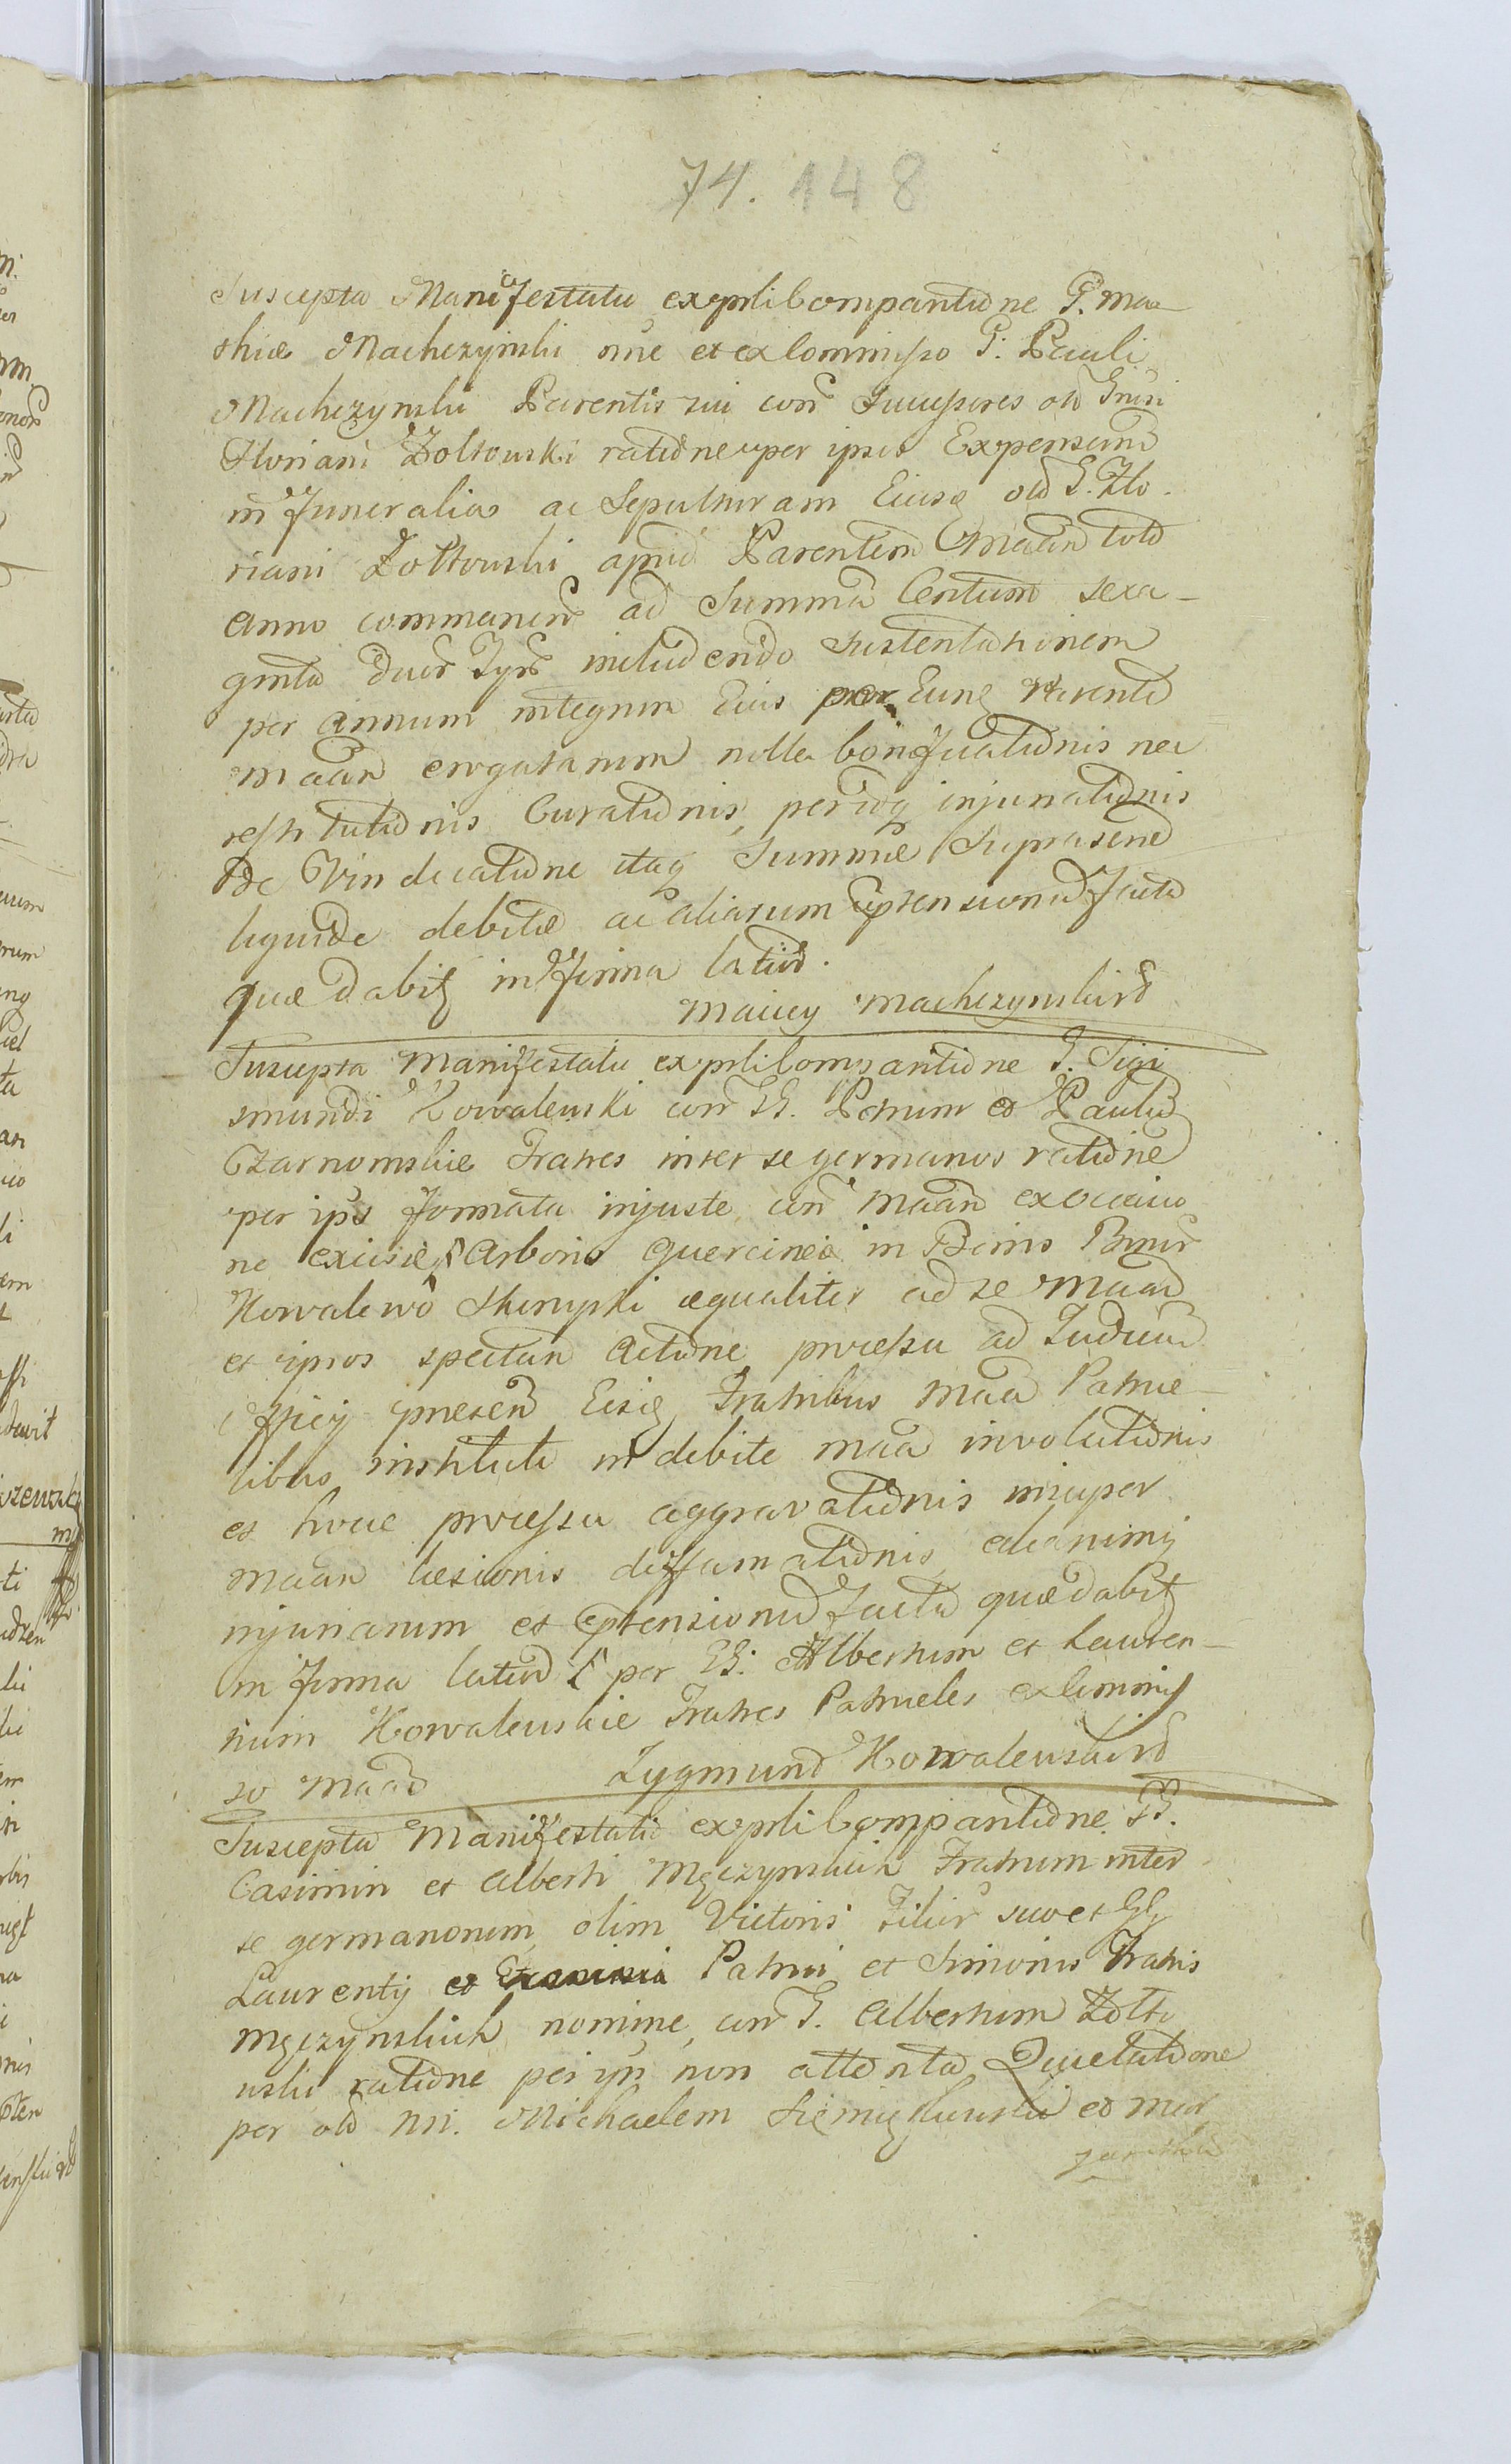 74. 148
Suscepta Manifestatio ex prsli Compantidne G. Ma
thiæ Machczynski nne et ex Commisso G. Pauli
Machczynski Parentis sui con Successores old Grusi
Floriani Zoltowski ratidne per ipsos Expensarum
in Funeralia ac Sepulturam Eiusq old G. Flo
riani Zoltowski apud Parentem Maan toto
anno commanen ad Summa Centum sexa-
ginta duor Tyn includendo sustentationem
per annum integrum Eius per Eunq Parente
maan erogatarum nolla bonificatidnis nec
restitutidnis Curatidnis, peridq injuriatidnis
de Vindicatidne itaq Summæ Suprascrip
liquide debitæ ac aliarum prætensionu facta
quæ dabitq in forma latior.
Maciey Machczynski
Suscepta Manifestatio ex prsli Compantidne G. Sigi
smundi Kowalewski con GG. Petrum et Paulu
Czarnomskie Fratres inter se germanos ratidne
per ipsos formata injuste con maan ex occasio
ne excisiæ Arboris quercineæ in Bonis
Kowalewo Skorupki æqualiter ad se Maan
et ipsos spectan Actidne processu ad Judicium
Officij præsen Eisq Fratribus maan Patrue-
libus instituti indebite maan involutidnis
et hocce processu aggravatidnis insuper
maan læsionis diffamatidnis alianimq
injuriarum et prætensionu facta quæ dabitq
in forma latior per GG. Albertum et Lauren-
tium Kowalewskie Fratres Patrueles ex Commis
so maan Zygmund Kowalewski
Suscepta Manifestatio ex prsli Compantidne GG.
Casimiri et Alberti Męczynskich Fratrum inter
se germanorum, olim Victoris Filior suo et GG.
Laurentij et Patrui et Simonis Fratris
Męczynskich nomine, con G. Albertum Zolto
wski ratidne per ips non attenta Quietatidone
per old NN. Michaelem et Mar
garitha